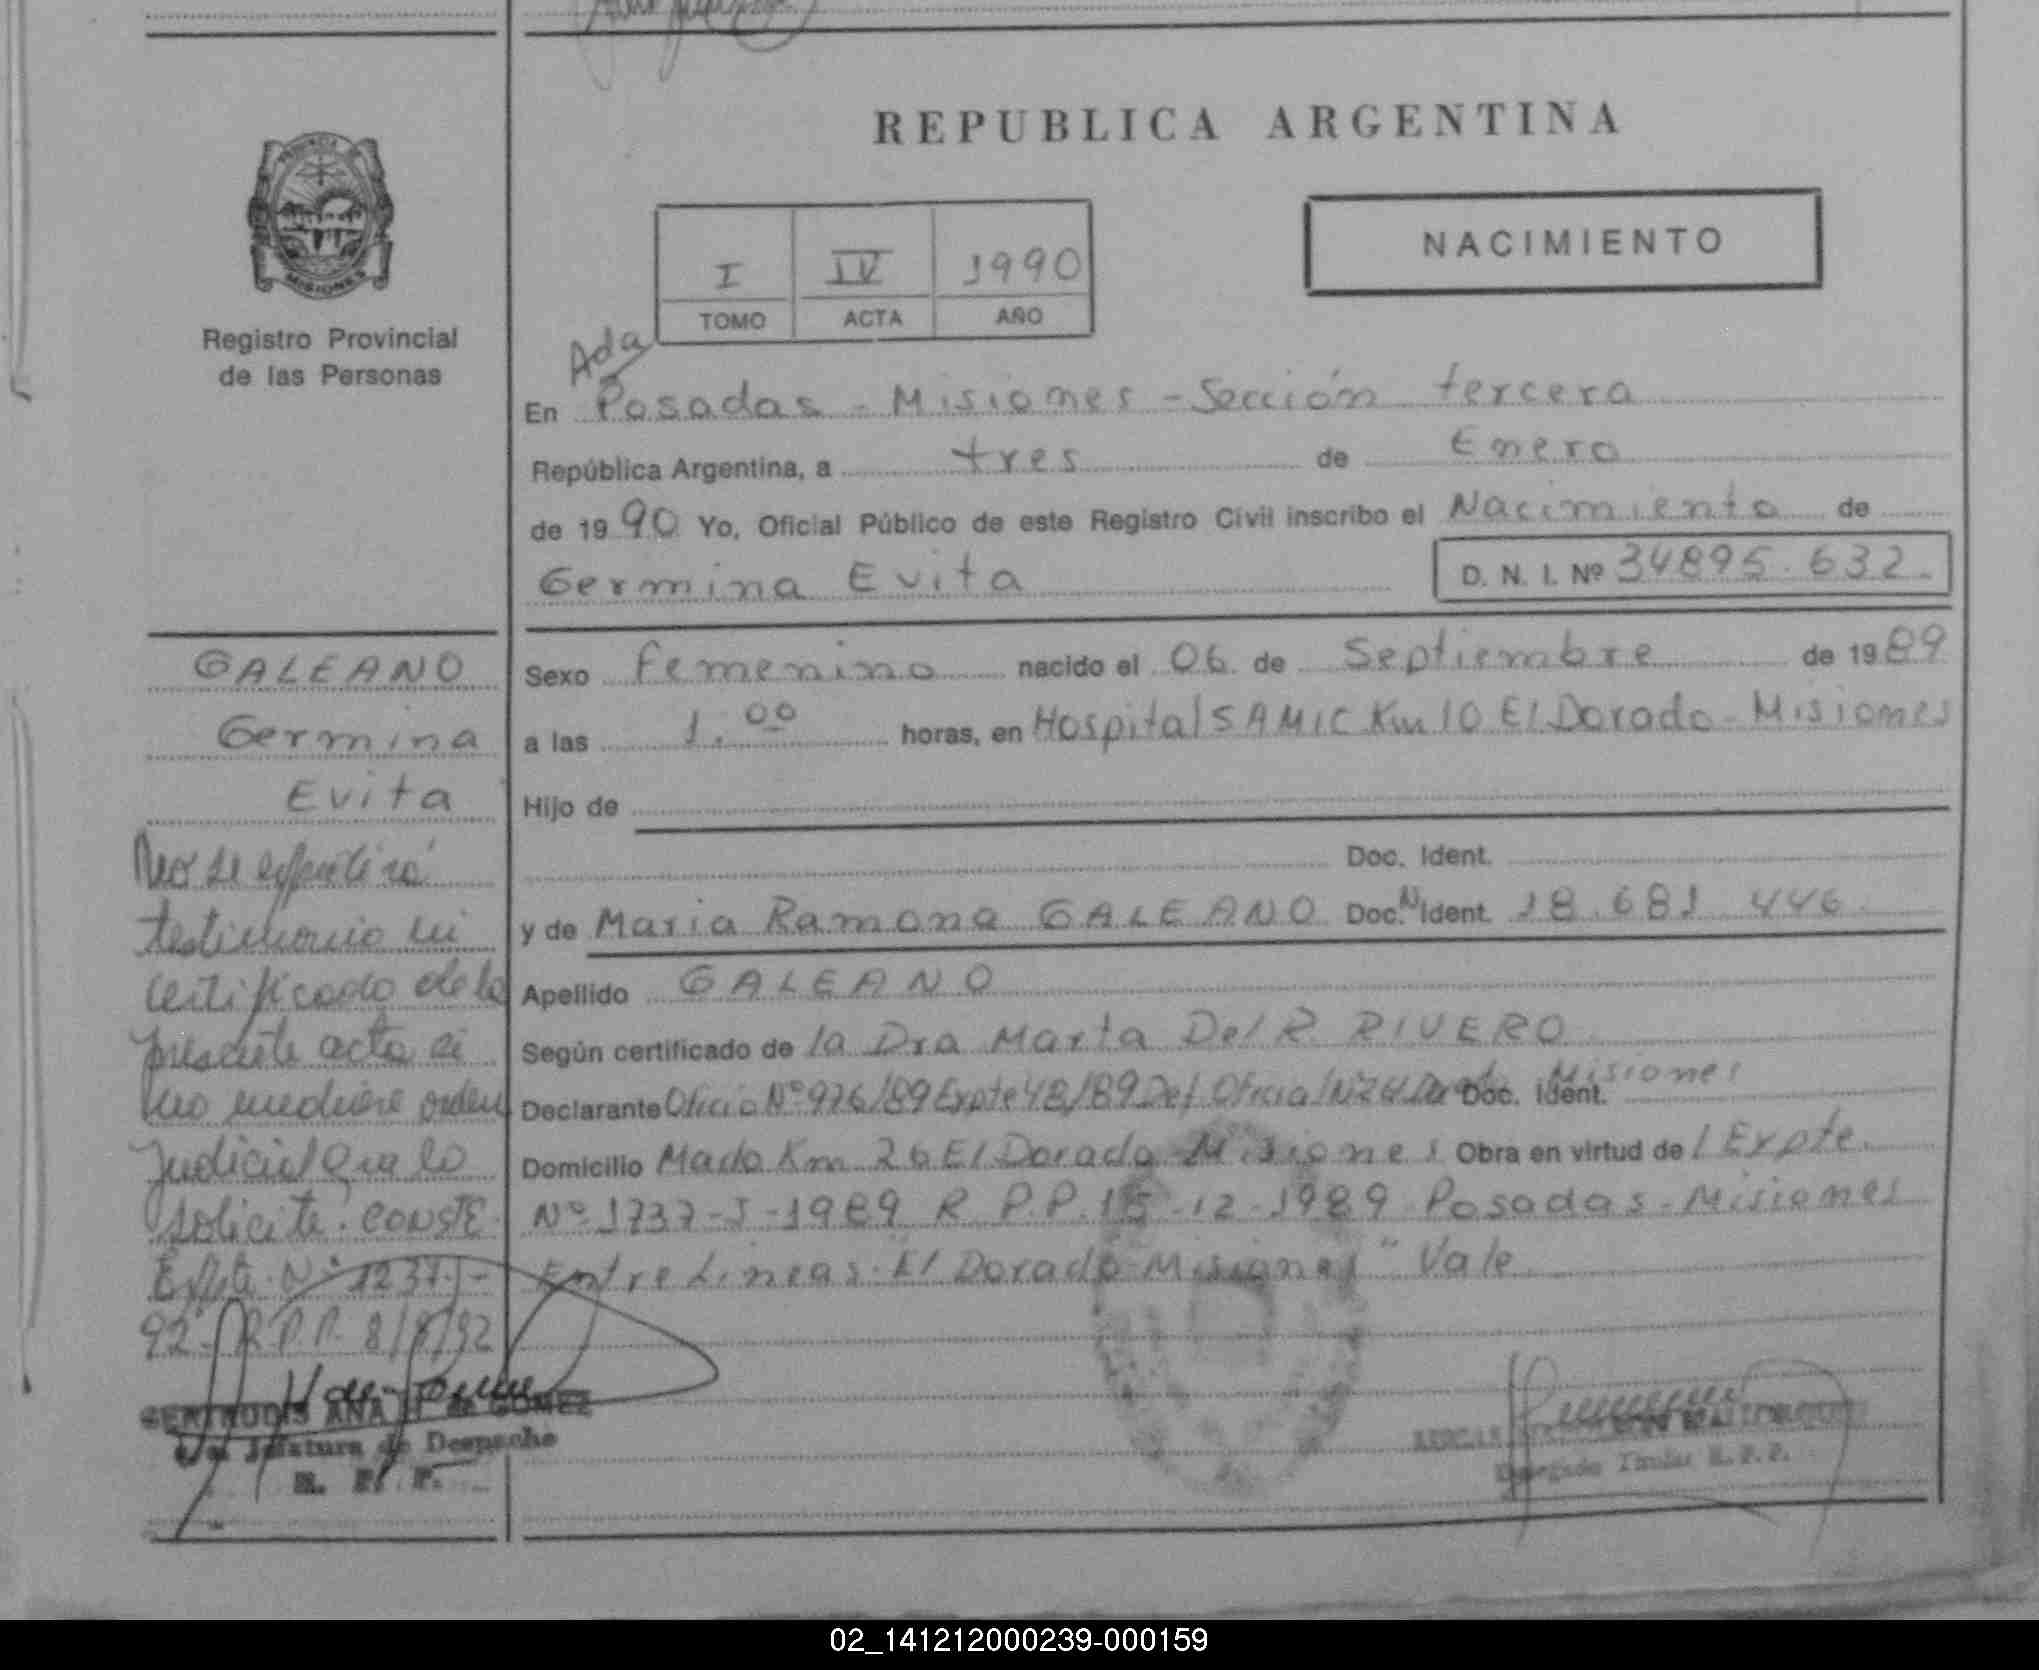 REPUBLICA ARGENTINA
PROVINCIA DE
MISIONES
Registro Provincial
de las Personas
NACIMIENTO
I IV 1990
TOMO ACTA AÑO
Ada
En Posadas - Misiones - Sección tercera
República Argentina, a tres de Enero
de 1990 Yo, Oficial Público de este Registro Civil inscribo el Nacimiento de
Germina Evita D. N. I. Nº 34895.632.
GALEANO
Germina
Evita
No se expedirá
testimonio ni
certificado de la
presente acta si
no mediare orden
Judicial que lo
solicite. CONSTE.
Expte. Nº 1237-J-
92- R.P.P. 8/ /92
GERTRUDIS ANA de GOMEZ
Jefatura de Despacho
R. P. P.
Sexo Femenino nacido el 06 de Septiembre de 1989
a las 1.00 horas, en Hospital SAMIC Km 10 El Dorado - Misiones
Hijo de
Doc. Ident.
y de Maria Ramona GALEANO Doc. N Ident. 18.681.446.
Apellido GALEANO
Según certificado de la Dra Marta Del R. RIVERO
Declarante Oficio Nº 976/89 Expte 48/89 Def Oficial Nº 2 Doc. Ident. Misiones
Domicilio Mado Km 26 El Dorado - Misiones Obra en virtud de l Expte.
Nº 1737-J-1989 R.P.P. 15-12-1989 Posadas - Misiones
Entre Lineas: "El Dorado Misiones" Vale
Delegado Titular R.P.P.
02_141212000239-000159